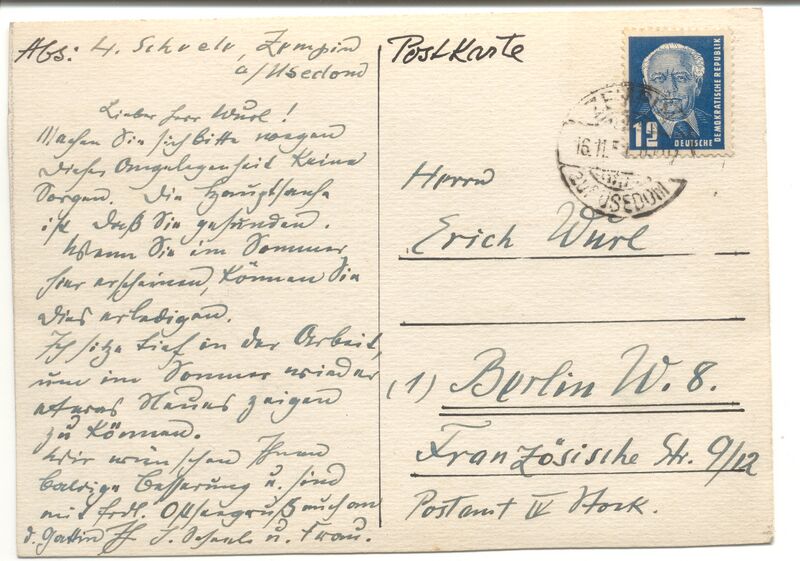 Abs: H. Scheele, Zempin
a/Usedom
Lieber Herr Wurl!
Machen Sie sich bitte wegen
dieser Angelegenheit keine
Sorgen. Die Hauptsache
ist daß Sie gesunden.
Wenn Sie im Sommer
hier erscheinen, können Sie
dies erledigen.
Ich sitze tief in der Arbeit,
um im Sommer wieder
etwas Neues zeigen
zu können.
Wir wünschen Ihnen
baldige Besserung u. sind
mit frdl. auch an
d. Gattin Scheele u. Frau.
Postkarte
DEUTSCHE
DEMOKRATISCHE REPUBLIK
ZEMPIN
16.11.5
USEDOM
Herrn
Erich Wurl
(1) Berlin W. 8.
Französische Str. 9/12
Postamt IV Stock.